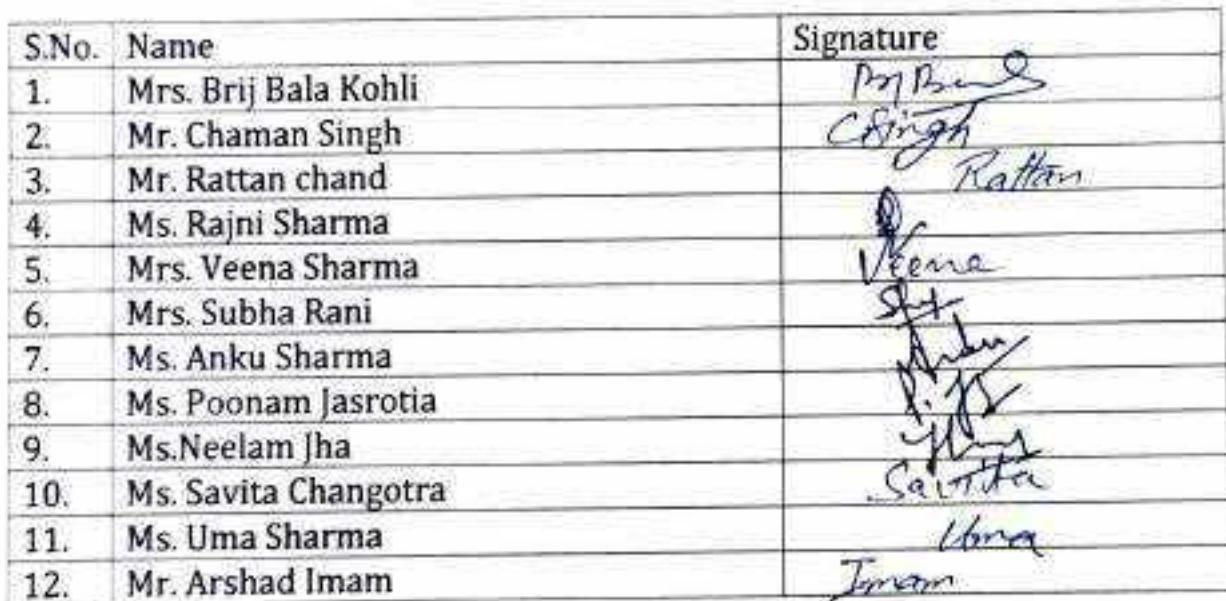 S.No. Name Signature
1. Mrs. Brij Bala Kohli
2. Mr. Chaman Singh CSingh
3. Mr. Rattan chand Rattan
4. Ms. Rajni Sharma
5. Mrs. Veena Sharma Veena
6. Mrs. Subha Rani
7. Ms. Anku Sharma Anku
8. Ms. Poonam Jasrotia
9. Ms.Neelam Jha
10. Ms. Savita Changotra Savita
11. Ms. Uma Sharma Uma
12. Mr. Arshad Imam Imam